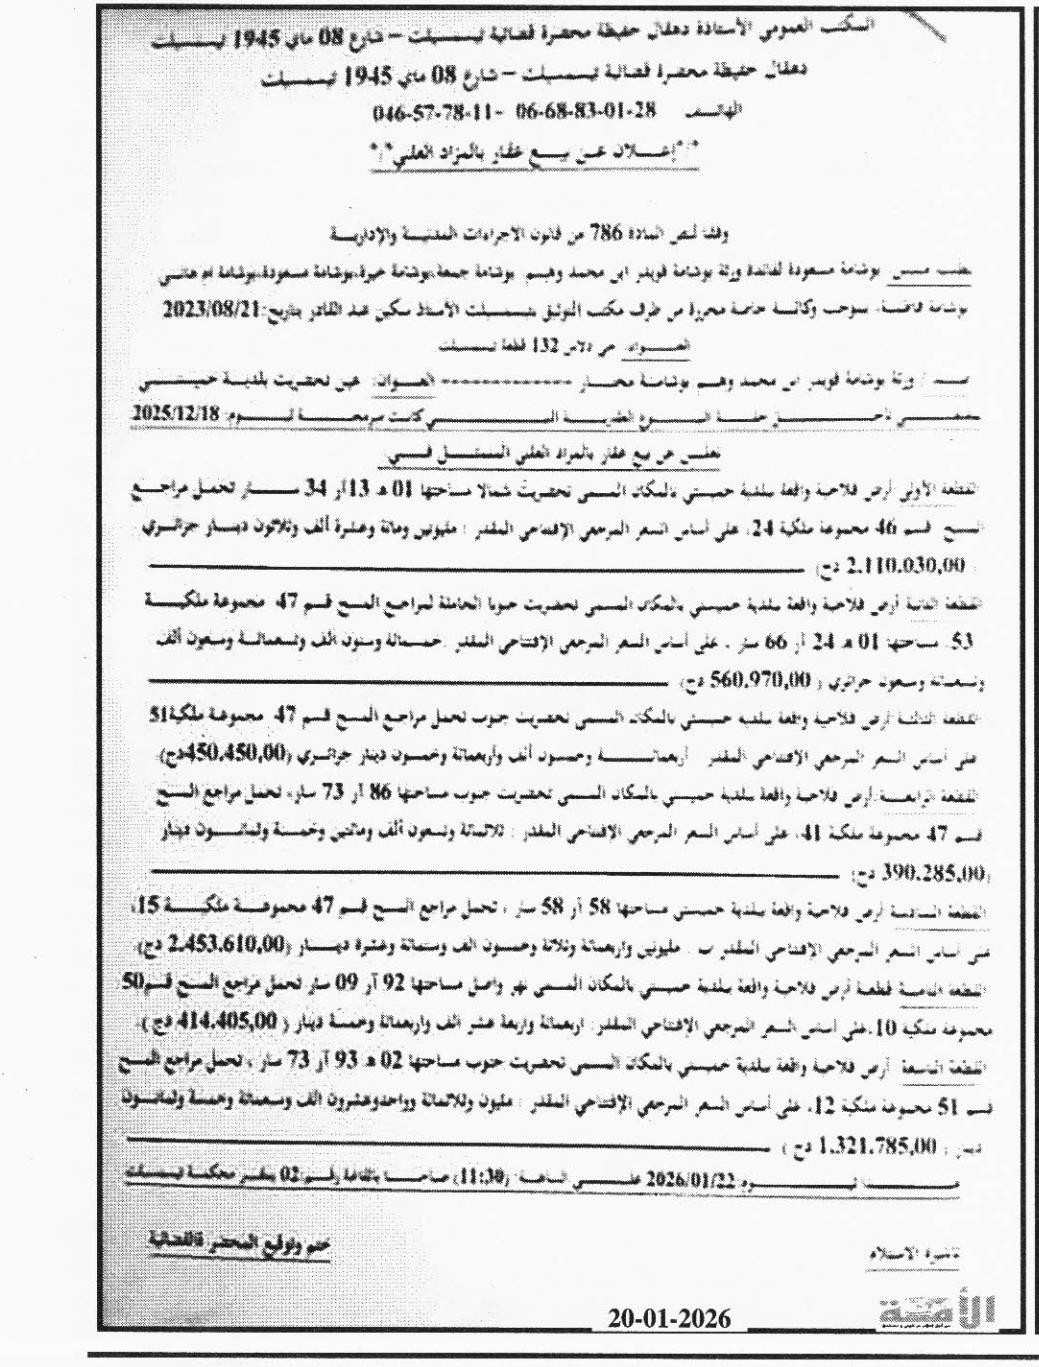 المكتب العمومي الأستاذة دهقال حفيظة محضرة قضائية تيسمسيلت – شارع 08 ماي 1945 تيسمسيلت
دهقال حفيظة محضرة قضائية تيسمسيلت – شارع 08 ماي 1945 تيسمسيلت
الهاتف 06-68-83-01-28 - 046-57-78-11
*/*إعلان عن بيع عقار بالمزاد العلني*/*
وفقا لنص المادة 786 من قانون الاجراءات المدنية والإدارية
بطلب من بوشامة مسعودة لفائدة ورثة بوشامة قويدر ابن محمد وهم بوشامة جمعة،بوشامة خيرة،بوشامة مسعودة،بوشامة ام هاني
بوشامة فاطمة، بموجب وكالة خاصة محررة من طرف مكتب التوثيق بتيسمسيلت الأستاذ سكين عبد القادر بتاريخ:2023/08/21
العنوان: حي دلاس 132 قطعة تيسمسيلت
ضد / ورثة بوشامة قويدر ابن محمد وهم بوشامة مختار ------------- العنوان: عين تحضريت بلدية خميستي
جلسة البيع التي كانت مبرمجة ليوم: 2025/12/18
نعلن عن بيع عقار بالمزاد العلني المتمثل في:
القطعة الأولى أرض فلاحية واقعة ببلدية خميستي بالمكان المسمى تحضريت شمالا مساحتها 01 ه 13آر 34 سنتيار تحمل مراجع
المسح قسم 46 مجموعة ملكية 24، على أساس السعر المرجعي الإفتتاحي المقدر : مليونين ومائة وعشرة ألف وثلاثون دينار جزائري
( 2.110.030,00 دج)
القطعة الثانية أرض فلاحية واقعة ببلدية خميستي بالمكان المسمى تحضريت جنوبا الحاملة لمراجع المسح قسم 47 مجموعة ملكية
53، مساحتها 01 ه 24 آر 66 سنتيار ، على أساس السعر المرجعي الإفتتاحي المقدر خمسمائة وستون ألف وتسعمائة وسبعون ألف
وتسعمائة وسبعون جزائري ( 560.970,00 دج)
القطعة الثالثة أرض فلاحية واقعة ببلدية خميستي بالمكان المسمى تحضريت جنوب تحمل مراجع المسح قسم 47 مجموعة ملكية51
على أساس السعر المرجعي الافتتاحي المقدر أربعمائة وخمسون ألف وأربعمائة وخمسون دينار جزائري (450.450,00دج)
القطعة الرابعة أرض فلاحية واقعة ببلدية خميستي بالمكان المسمى تحضريت جنوب مساحتها 86 آر 73 سنتيار، تحمل مراجع المسح
قسم 47 مجموعة ملكية 41، على أساس السعر المرجعي الافتتاحي المقدر : ثلاثمائة وتسعون ألف ومائتين وخمسة وثمانون دينار
(390.285,00 دج)
القطعة السادسة أرض فلاحية واقعة ببلدية خميستي مساحتها 58 آر 58 سنتيار ، تحمل مراجع المسح قسم 47 مجموعة ملكية 15،
على أساس السعر المرجعي الإفتتاحي المقدر ب : مليونين واربعمائة وثلاثة وخمسون الف وستمائة وعشرة دينار (2.453.610,00 دج)
القطعة الثامنة قطعة أرض فلاحية واقعة ببلدية خميستي بالمكان المسمى نهر واصل مساحتها 92 آر 09 سنتيار تحمل مراجع المسح قسم50
مجموعة ملكية 10،على أساس السعر المرجعي الإفتتاحي المقدر: اربعمائة واربعة عشر الف واربعمائة وخمسة دينار ( 414.405,00 دج ).
القطعة التاسعة أرض فلاحية واقعة ببلدية خميستي بالمكان المسمى تحضريت جنوب مساحتها 02 ه 93 آر 73 سنتيار ، تحمل مراجع المسح
قسم 51 مجموعة ملكية 12، على أساس السعر المرجعي الإفتتاحي المقدر : مليون وثلاثمائة وواحدوعشرون الف وسبعمائة وخمسة وثمانون
دينار ( 1.321.785,00 دج )
يوم: 2026/01/22 على الساعة: (11:30) صباحا بالقاعة رقم:02 بمقر محكمة تيسمسيلت
تأشيرة الاستلام
ختم وتوقيع المحضرة القضائية
20-01-2026
الأمة